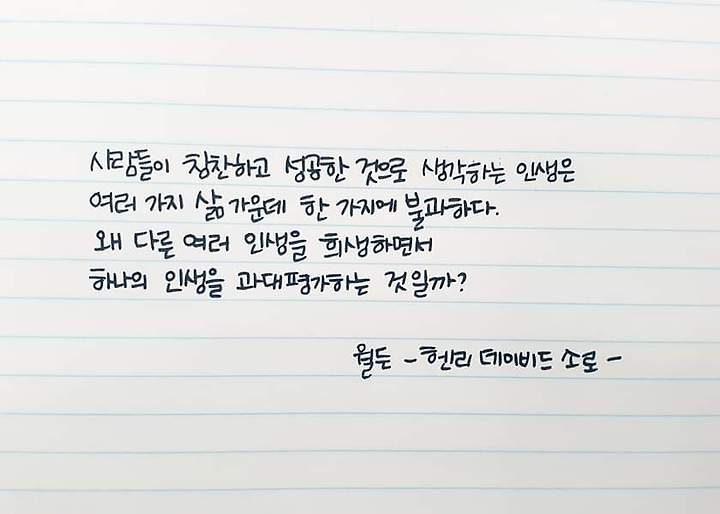 사람들이 칭찬하고 성공한 것으로 생각하는 인생은
여러 가지 삶 가운데 한 가지에 불과하다.
왜 다른 여러 인생을 희생하면서
하나의 인생을 과대평가하는 것일까?
월든 - 헨리 데이비드 소로 -